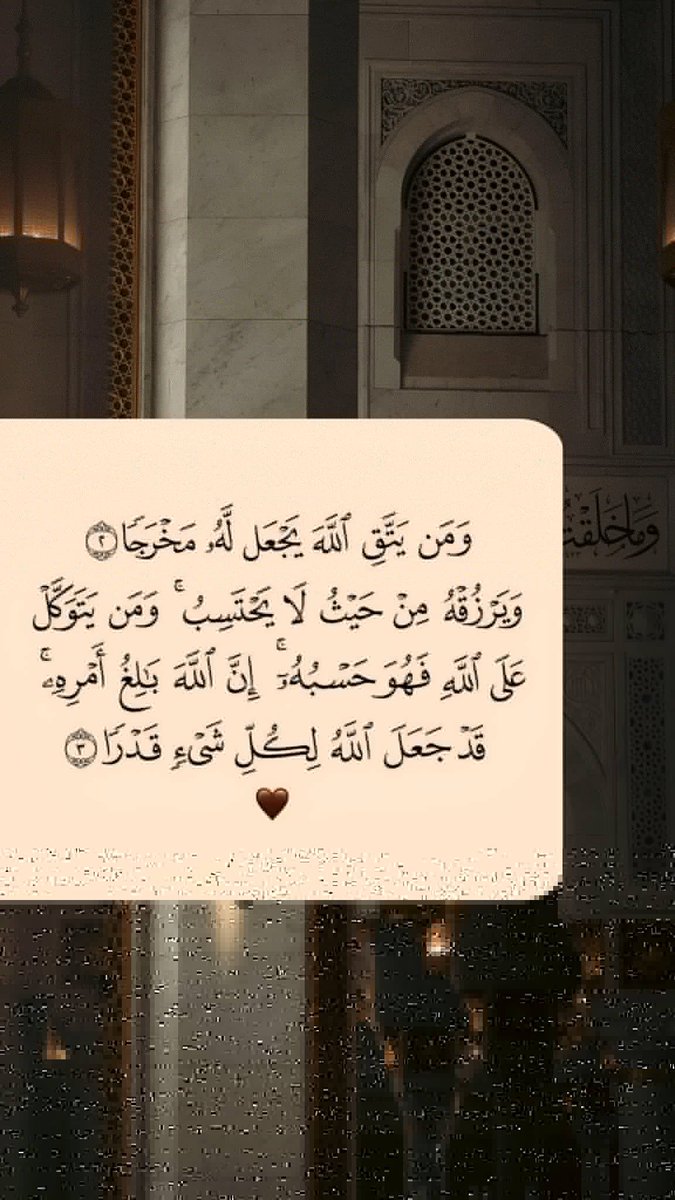 وَمَن يَتَّقِ ٱللَّهَ يَجْعَل لَّهُۥ مَخْرَجًا ٢
وَيَرْزُقْهُ مِنْ حَيْثُ لَا يَحْتَسِبُ ۚ وَمَن يَتَوَكَّلْ
عَلَى ٱللَّهِ فَهُوَ حَسْبُهُۥٓ ۚ إِنَّ ٱللَّهَ بَـٰلِغُ أَمْرِهِۦ ۚ
قَدْ جَعَلَ ٱللَّهُ لِكُلِّ شَىْءٍ قَدْرًا ٣
وَمَا خَلَقْتُ